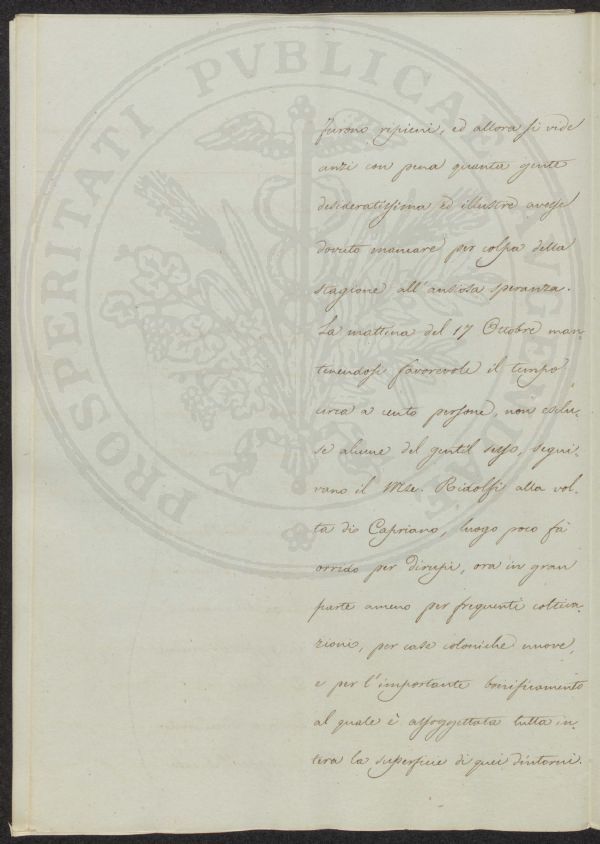 PROSPERITATI PVBLICAE AVGENDAE
furono ripieni, ed allora si vide
anzi con pena quanta gente
desideratissima ed illustre avesse
dovuto mancare per colpa della
stagione all'ansiosa speranza.
La mattina del 17 Ottobre man-
tenendosi favorevole il tempo
circa a cento persone, non esclu-
se alcune del gentil sesso, segui-
vano il Mse. Ridolfi alla vol-
ta di Capriano, luogo poco fà
orrido per dirupi, ora in gran
parte ameno per frequenti coltiva-
zioni, per case coloniche nuove,
e per l'importante bonificamento
al quale è assoggettata tutta in-
tera la superficie di quei dintorni.